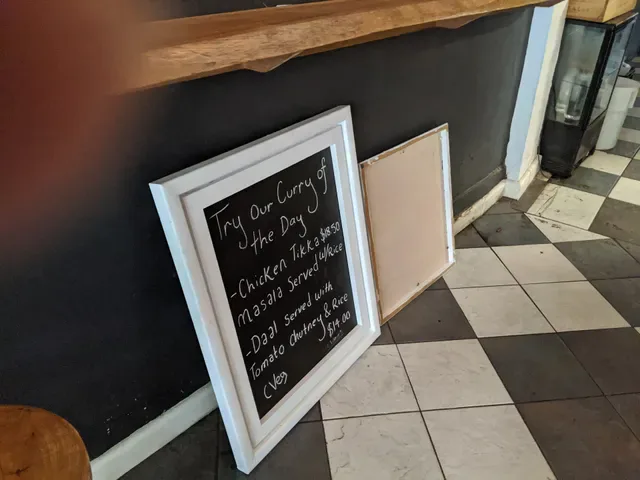 Try Our Curry of
the Day
- Chicken Tikka $18.50
Masala Served w/Rice
- Daal served with
Tomato Chutney & Rice
$14.00
(Veg